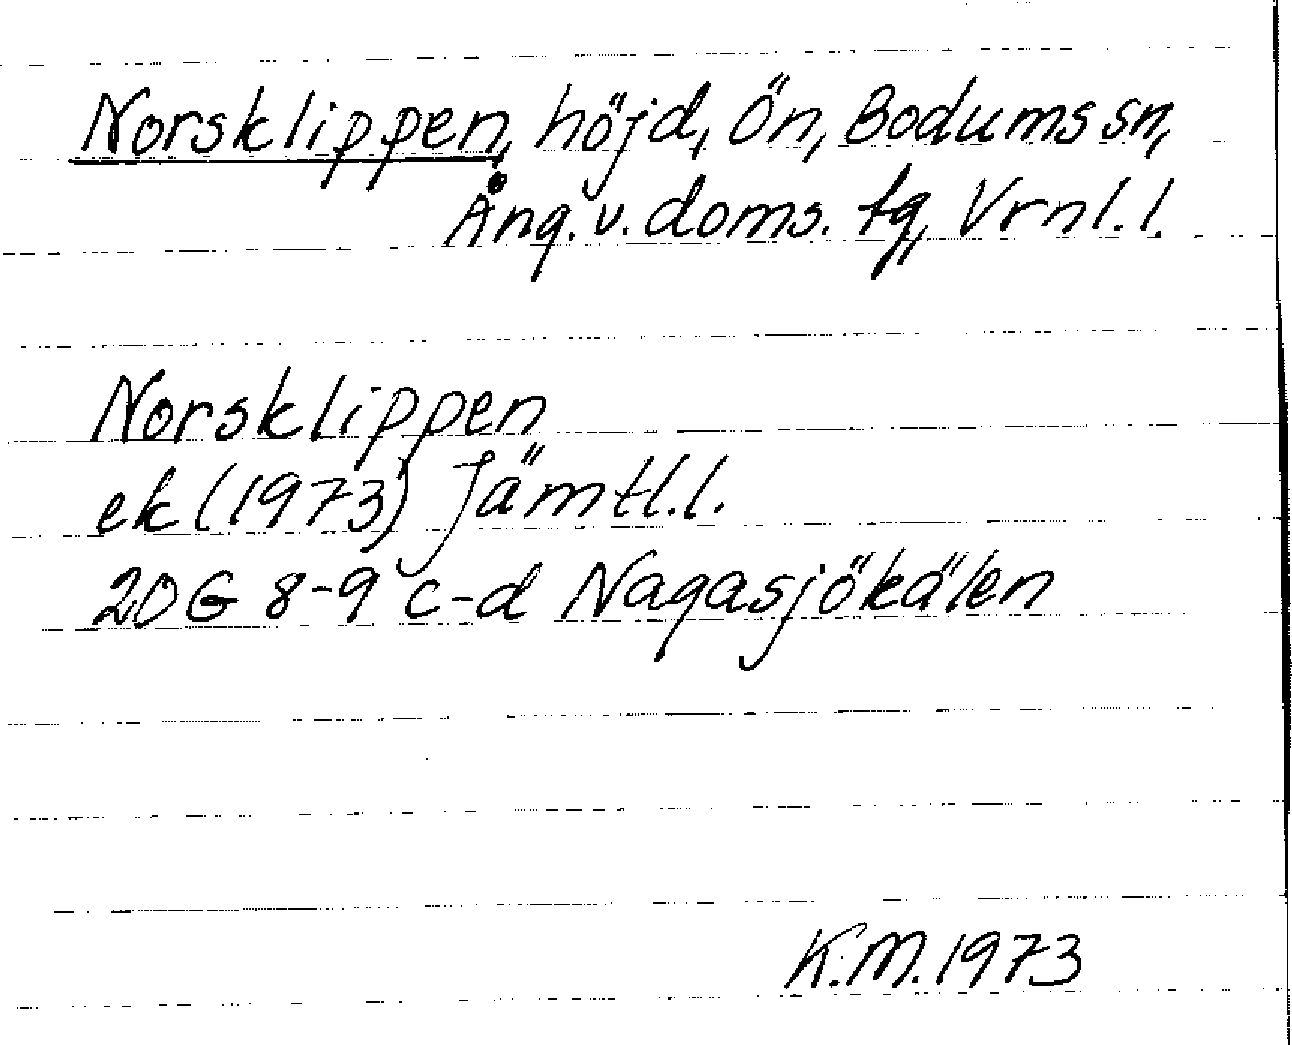 Norsklippen, höjd, Ön, Bodums sn,
Ång. v. doms. tg, Vrnl. l.
Norsklippen
ek (1973) Jämtl. l.
20G 8-9 c-d Nagasjökälen
K.M. 1973